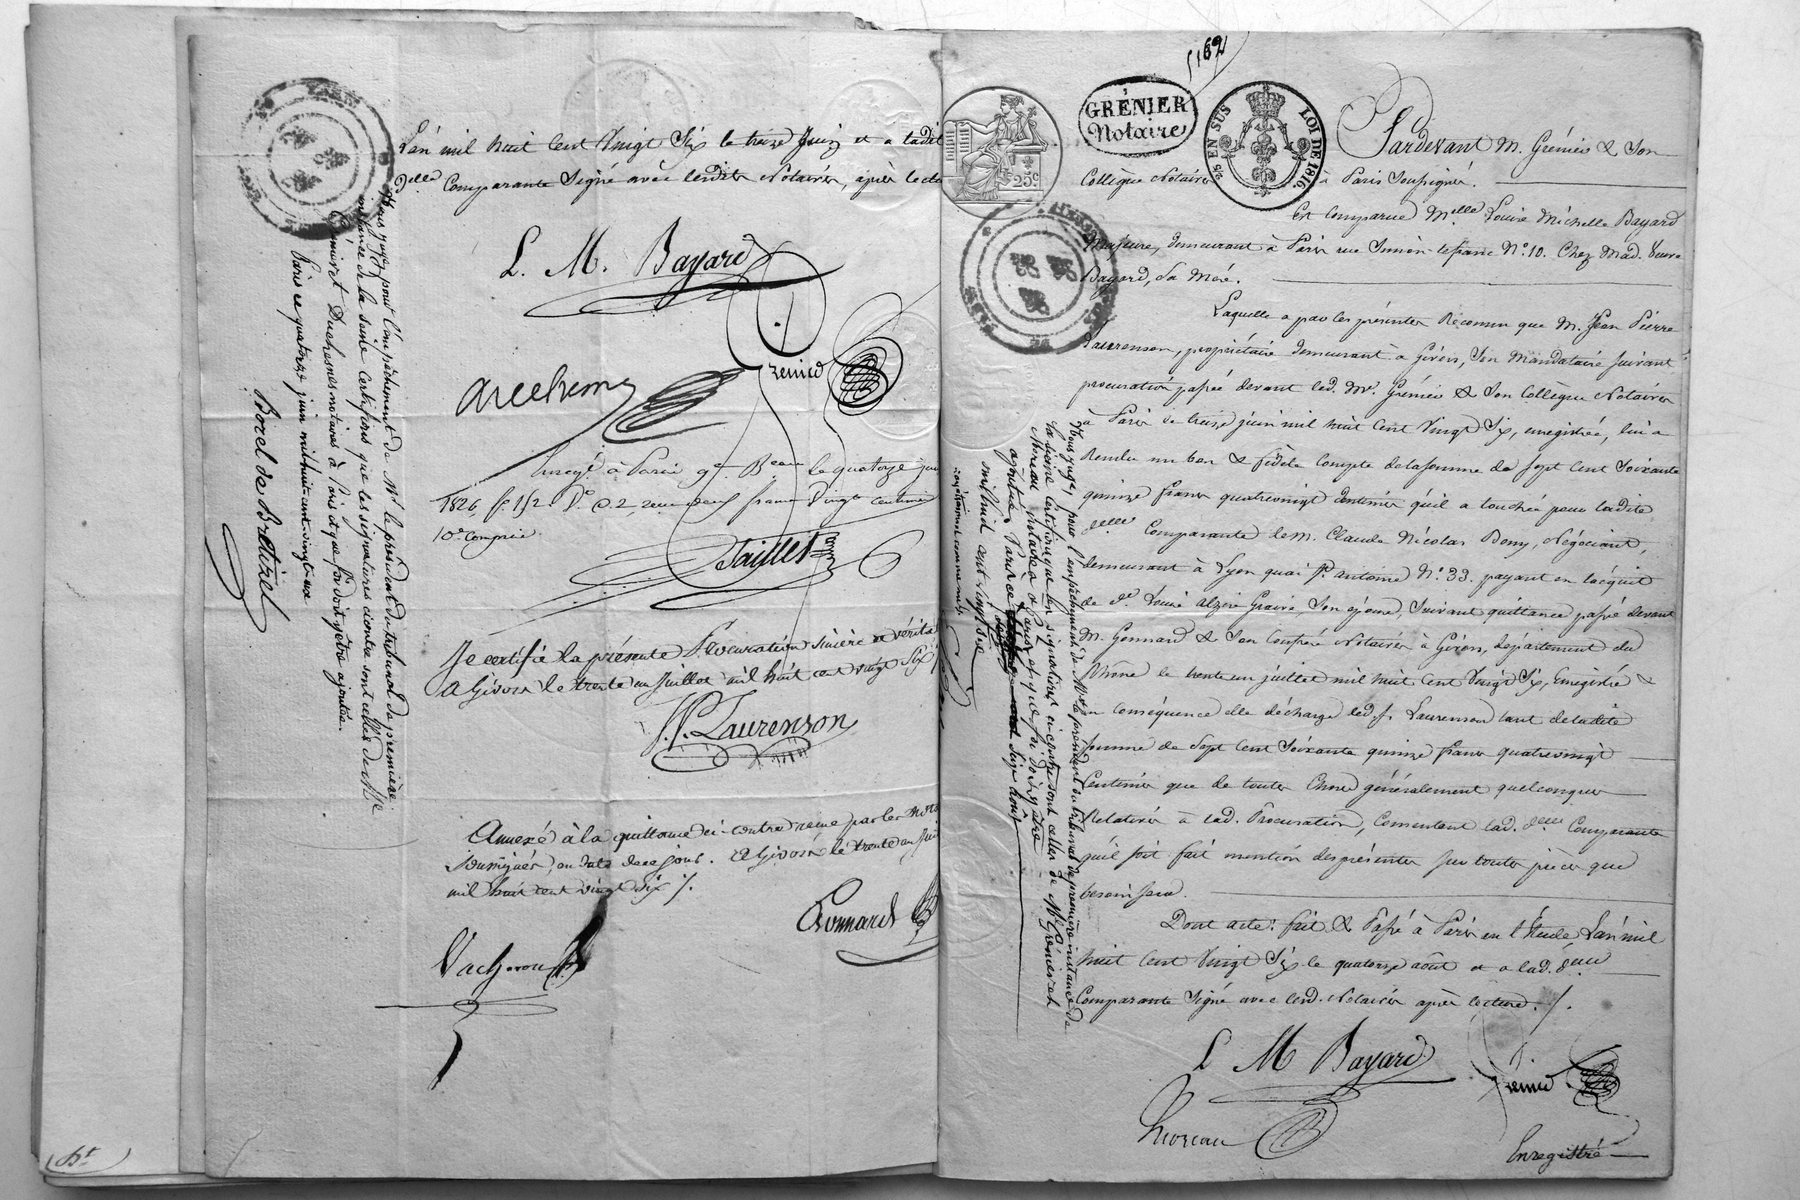 L'an mil huit cent vingt Six le treize Juin et a ladit
delle Comparante Signé avec lesdits Notaires, après lectu
L. M. Bayard
Grenier
Enregé à Paris le quatorze juin
1826 fo 152 Vo C. 2 reçu deux francs vingt centimes
10e Compris
Taillet
Je certifie la présente Procuration sincère et vérita
a Givors le trente un Juillet mil huit cent vingt Six
J. P. Laurenson
Annexé à la quittance ci-contre reçue par les Notre
Soussignés, en date de ce jour. a Givors le trente un Juil
mil huit cent vingt Six /.
Gonnard
Vacheron
Nous juge, pour l'empêchement de Mr le président du tribunal de première
instance de la Seine certifions que les signatures ci contre sont celles de Me
Grénier et Duchesne notaires à Paris et que foi doit y être ajoutée.
Paris ce quatorze juin mil huit cent vingt-six
Borel de Brétizel
5162
GRÉNIER
Notaire
25 EN SUS
LOI DE 1816.
25c
Pardevant M. Grénier & Son
Collègue Notaires à Paris Soussignés.
Est Comparue Melle Louise Michelle Bayard
Majeure, demeurant à Paris rue Simon-lefranc No. 10. Chez Mad. Veuve
Bayard, Sa Mère.
Laquelle a par les présentes Reconnu que M. Jean Pierre
Laurenson, propriétaire demeurant à Givors, Son Mandataire suivant
procuration passée devant led. Me. Grénier & Son Collègue Notaires
à Paris le treize juin mil huit cent Vingt Six, enregistrée, lui a
Rendu un bon & fidèle Compte de la somme de Sept cent Soixante
quinze francs quatrevingt Centimes qu'il a touchée pour ladite
delle Comparante de M. Claude Nicolas Bony, Négociant,
demeurant à Lyon quai St. antoine No. 33. payant en l'acquit
de De Louise Alzire Graire, Son épouse, Suivant quittance passée devant
M. Gonnard & Son Confrère Notaires à Givors, département du
Rhône le trente un juillet mil huit Cent Vingt Six, Enregistrée
en conséquence elle décharge led. S. Laurenson tant de ladite
Somme de Sept Cent Soixante quinze francs quatrevingt
Centimes que de toutes Choses généralement quelconques
Relatives à lad. Procuration, Consentant lad. delle Comparante
qu'il soit fait mention des présentes sur toutes pièces que
besoin sera.
Dont acte: fait & Passé à Paris en l'Etude L'an mil
huit Cent Vingt Six le quatorze août et a lad. delle
Comparante Signé avec lesd. Notaires après lecture. /.
L M Bayard
Grenier
Moreau
Enregistré
Nous juge, pour l'empêchement de Mr le président du tribunal de première instance de
la Seine certifions que les signatures ci-contre sont celles de Mes Grénier et
Moreau notaires à Paris et que foi doit y être
ajoutée. Paris ce seize août
mil huit cent vingt six